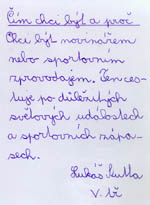 Čím chci být a proč
Chci být novinářem
nebo sportovním
zpravodajem. Ten ces-
tuje po důležitých
světových událostech
a sportovních zápa-
sech.
Lukáš
V. tř